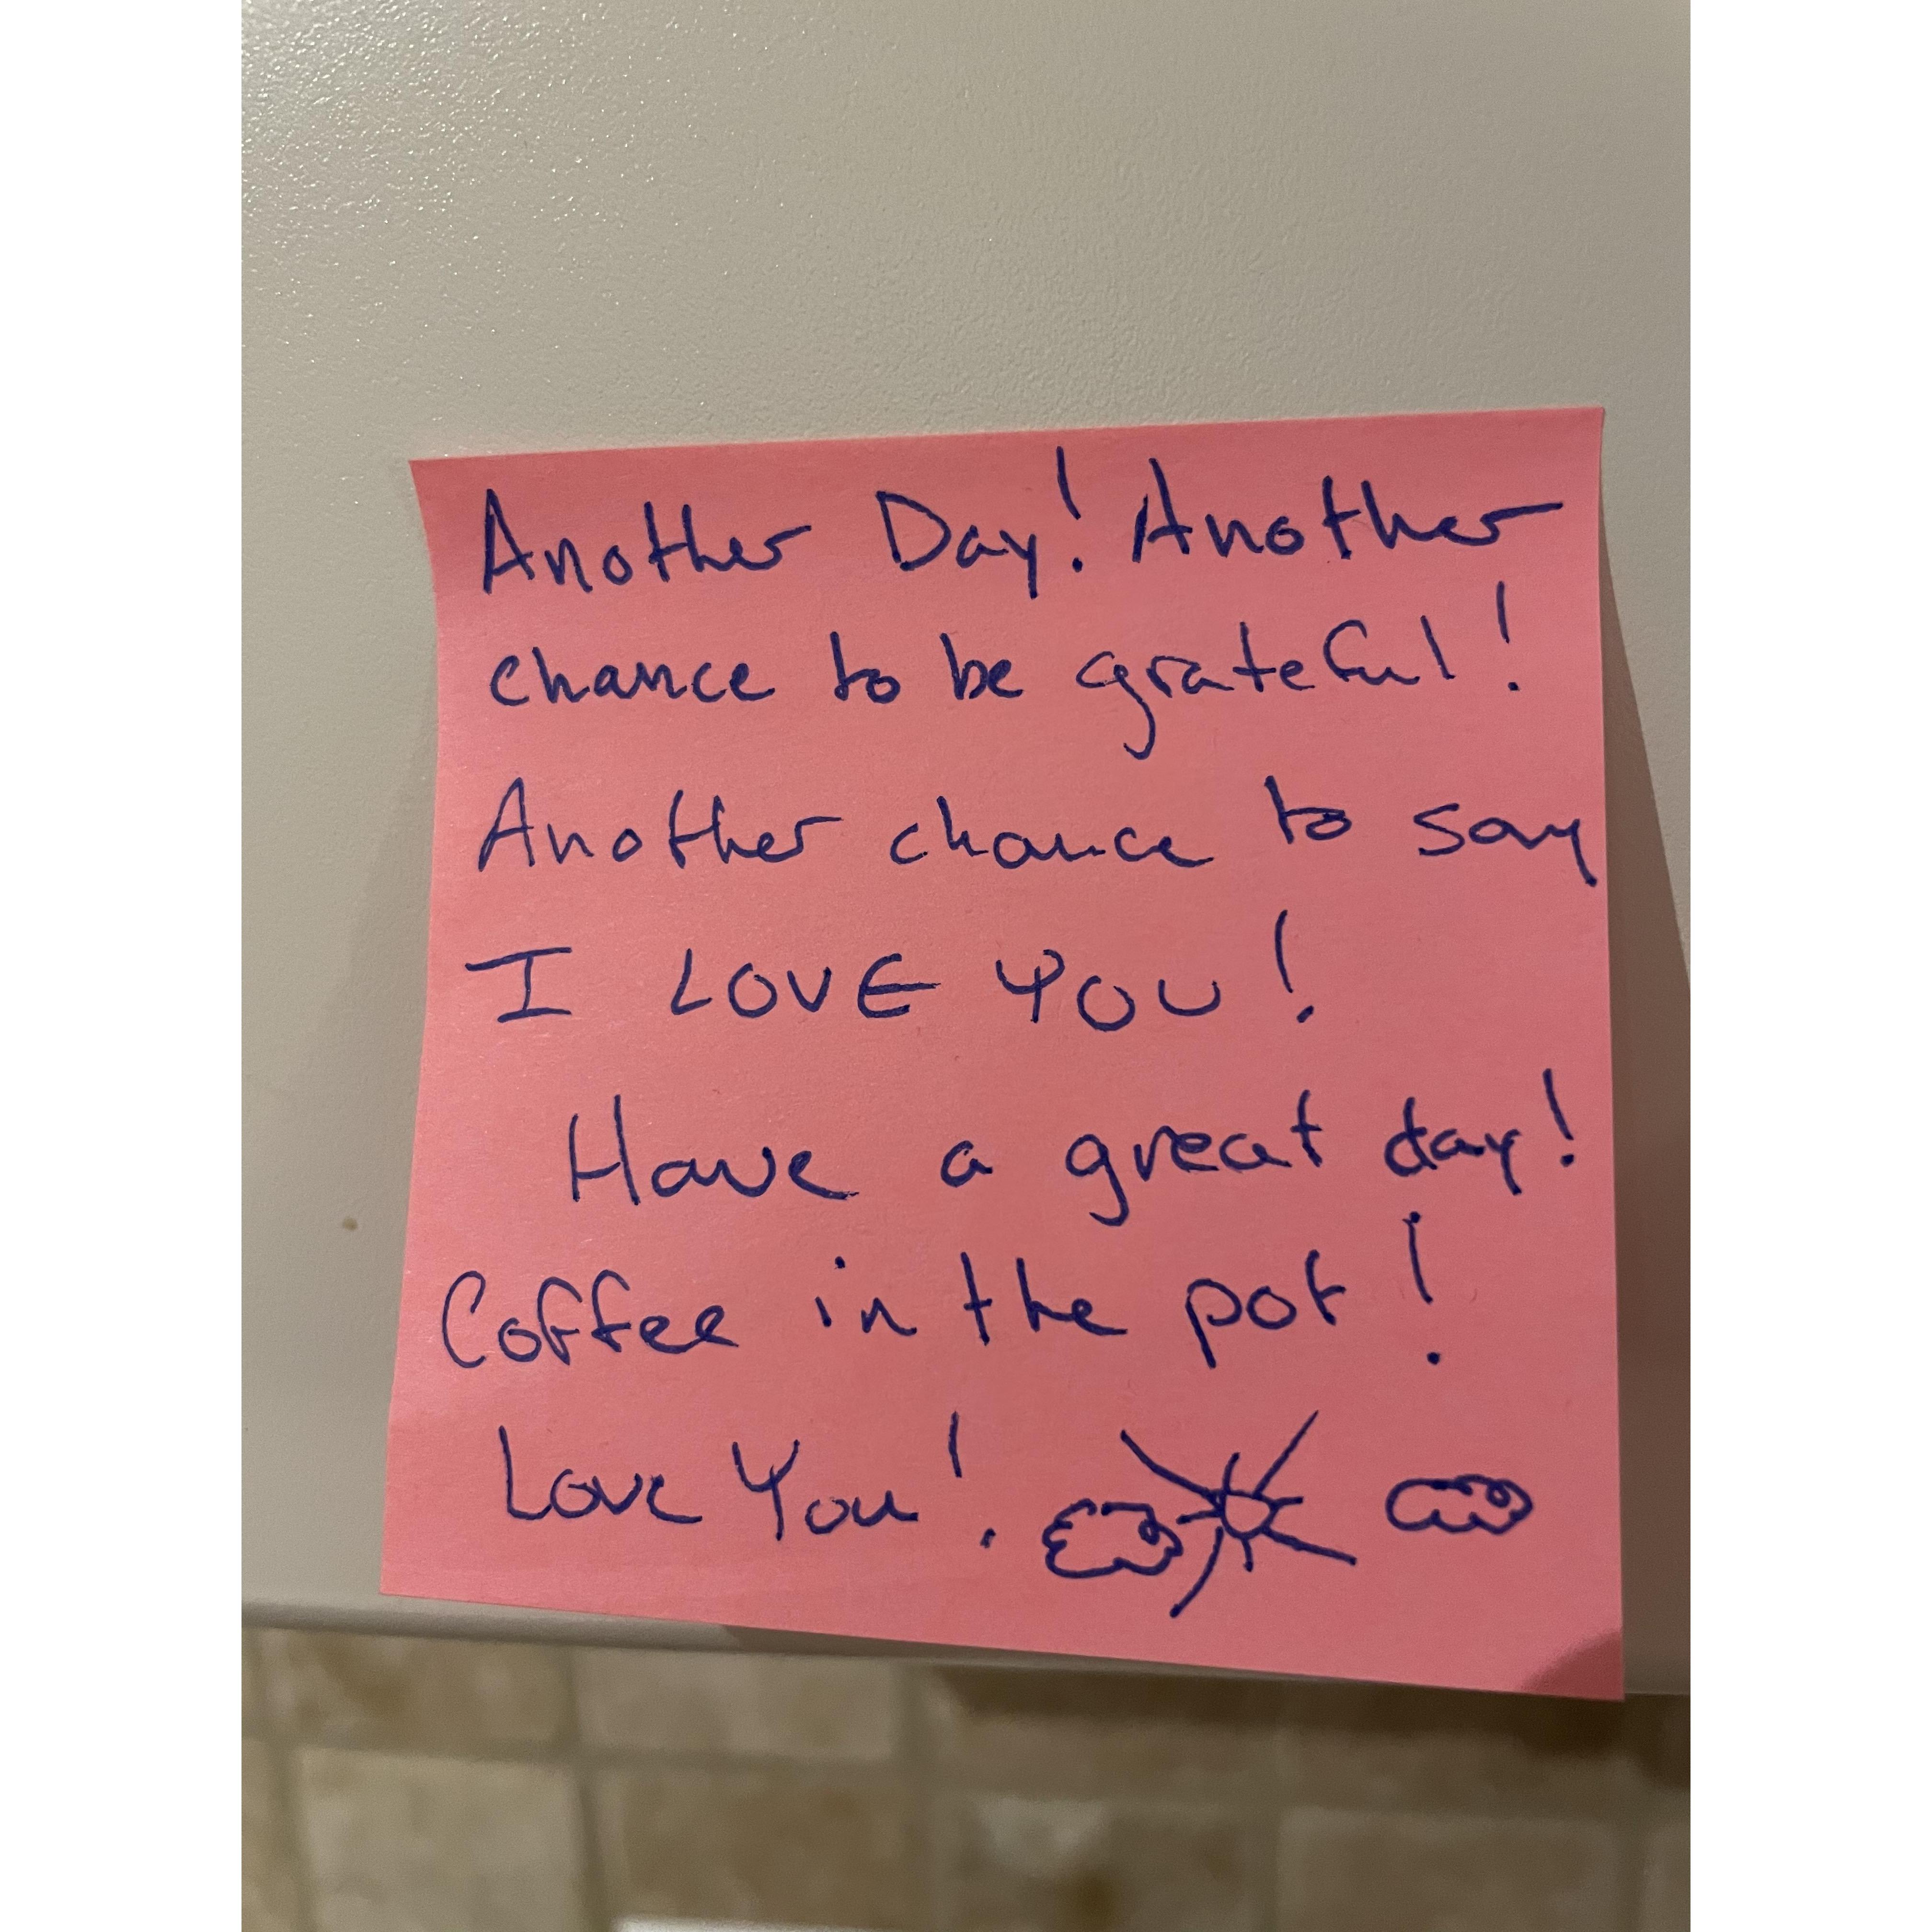 Another Day! Another
chance to be grateful!
Another chance to say
I LOVE YOU!
Have a great day!
Coffee in the pot!
Love You!